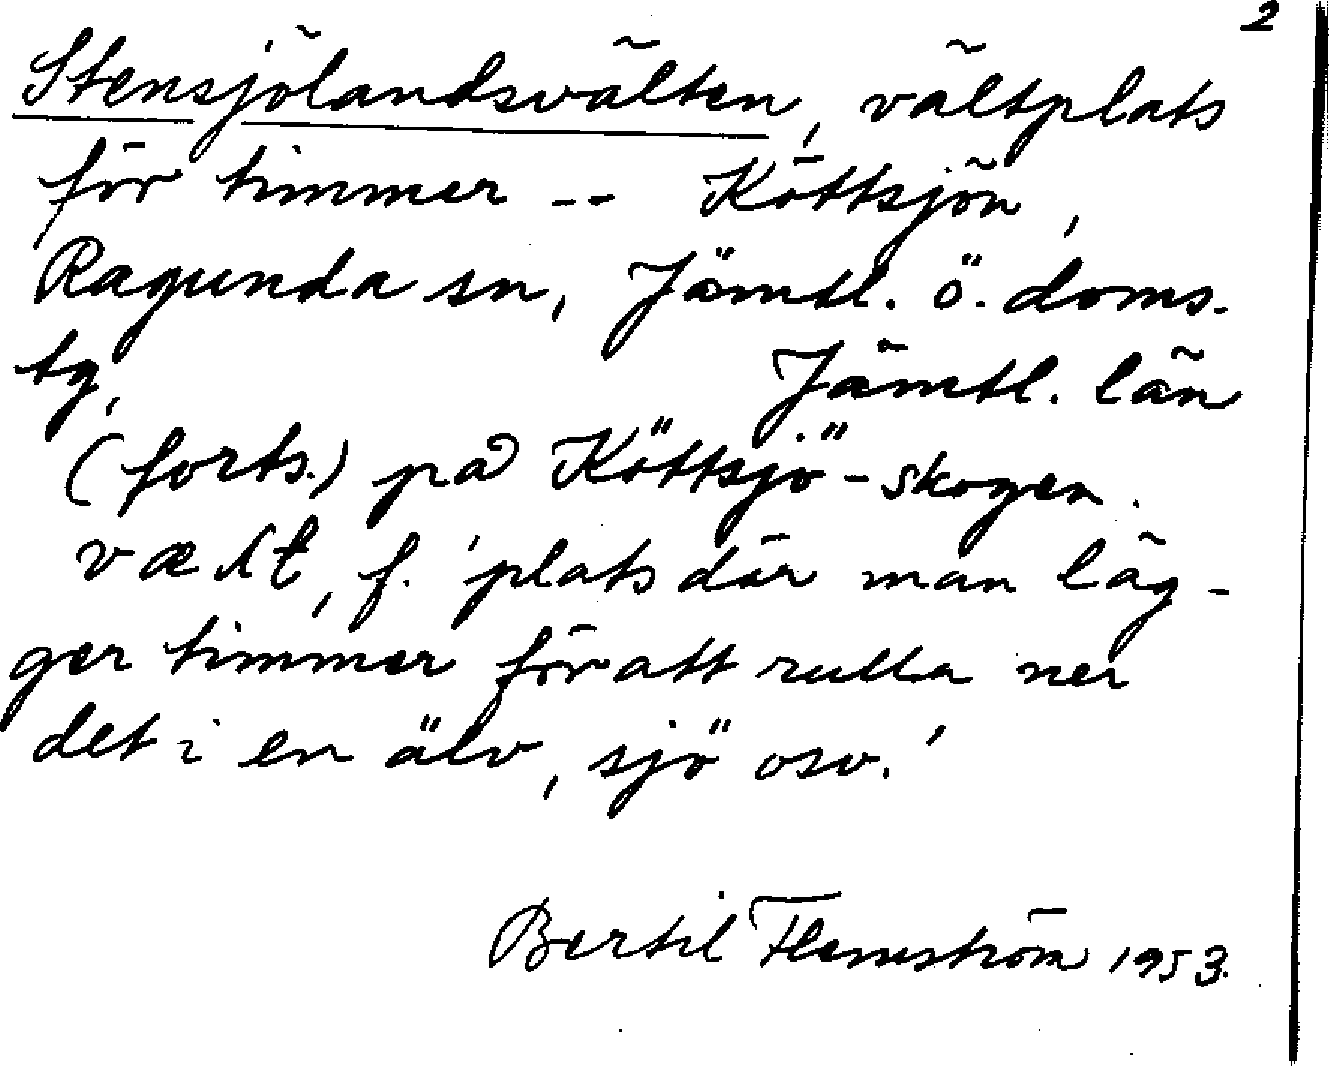 2
Stensjölandsvälten, vältplats
för timmer -- Köttsjön,
Ragunda sn, Jämtl. ö. doms.
tg, Jämtl. län
(forts.) på Köttsjö-skogen.
væłt, f. 'plats där man läg-
ger timmer för att rulla ner
det i en älv, sjö osv.'
Bertil Flemström 1953.